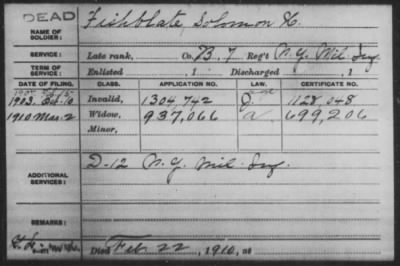 DEAD
NAME OF SOLDIER: Fishblate, Solomon H.
SERVICE: Late rank, Co. B. 7 Reg't N.Y. Mil Inf.
TERM OF SERVICE: Enlisted , 1 Discharged , 1
DATE OF FILING. CLASS. APPLICATION NO. LAW. CERTIFICATE NO.
1903. Invalid, 1304,742 1128,048
1910 Mar. 2 Widow, 937,066 699,206
Minor,
ADDITIONAL SERVICES: D-12 N.Y. Mil. Inf.
REMARKS:
Died Feb. 22, 1910, at